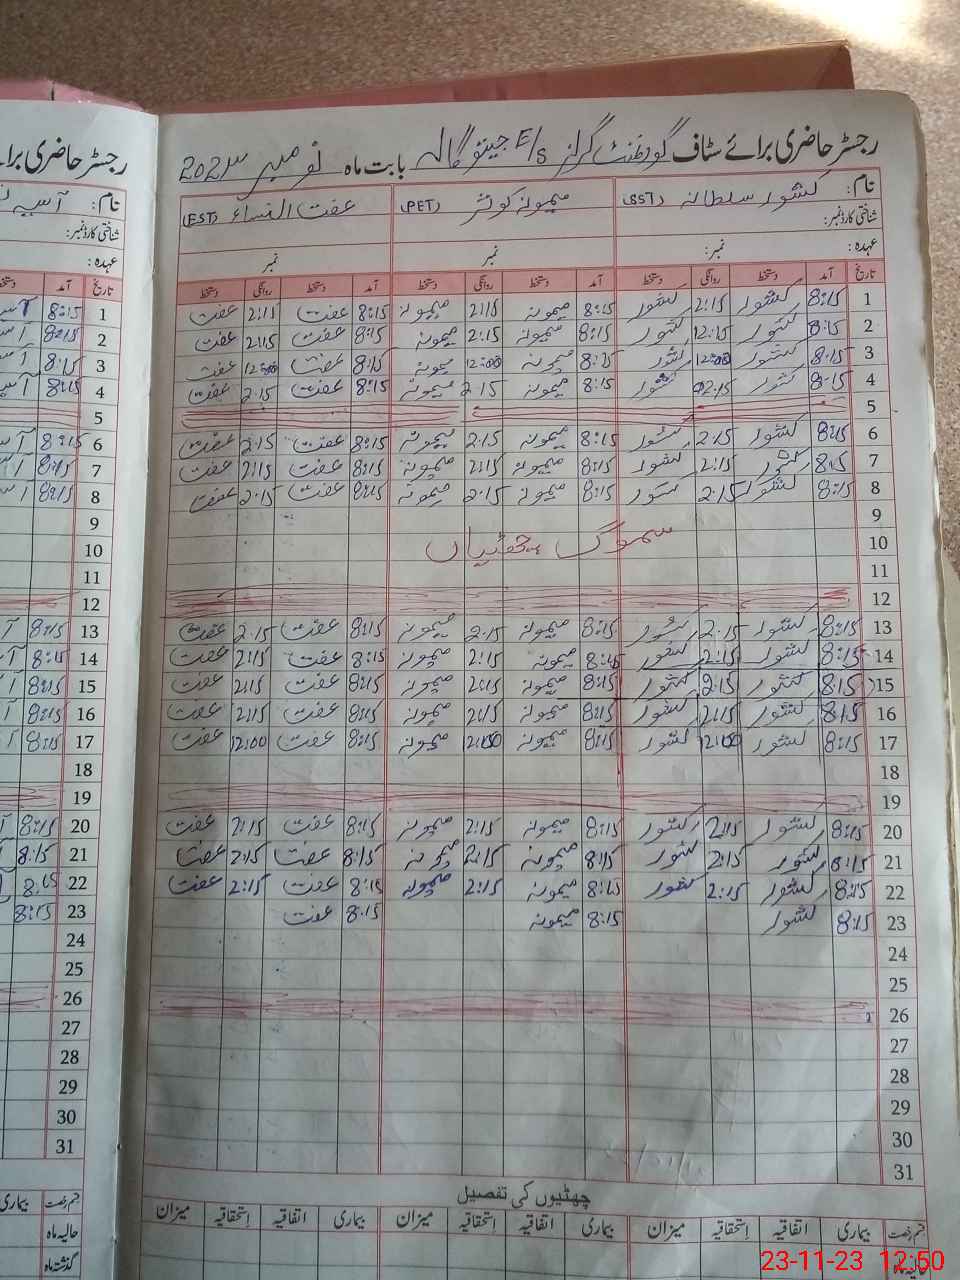 رجسٹر حاضری برائے سٹاف گورنمنٹ گرلز E/S بابت ماہ نومبر 2023
نام: کشور سلطانہ (SST) میمونہ کوثر (PET) عفت النساء (EST)
شناختی کارڈ نمبر:
عہدہ: نمبر: نمبر نمبر
تاریخ آمد دستخط روانگی دستخط آمد دستخط روانگی دستخط آمد دستخط روانگی دستخط
1 8:15 کشور 2:15 کشور 8:15 میمونہ 2:15 میمونہ 8:15 عفت 2:15 عفت
2 8:15 کشور 12:15 کشور 8:15 میمونہ 2:15 میمونہ 8:15 عفت 2:15 عفت
3 8:15 کشور 12:00 کشور 8:15 میمونہ 12:00 میمونہ 8:15 عفت 12:00 عفت
4 8:15 کشور 2:15 کشور 8:15 میمونہ 2:15 میمونہ 8:15 عفت 2:15 عفت
5
6 8:15 کشور 2:15 کشور 8:15 میمونہ 2:15 میمونہ 8:15 عفت 2:15 عفت
7 8:15 کشور 2:15 کشور 8:15 میمونہ 2:15 میمونہ 8:15 عفت 2:15 عفت
8 8:15 کشور 2:15 کشور 8:15 میمونہ 2:15 میمونہ 8:15 عفت 2:15 عفت
9
10 سموگ چھٹیاں
11
12
13 8:15 کشور 2:15 کشور 8:15 میمونہ 2:15 میمونہ 8:15 عفت 2:15 عفت
14 8:15 کشور 2:15 کشور 8:15 میمونہ 2:15 میمونہ 8:15 عفت 2:15 عفت
15 8:15 کشور 2:15 کشور 8:15 میمونہ 2:15 میمونہ 8:15 عفت 2:15 عفت
16 8:15 کشور 2:15 کشور 8:15 میمونہ 2:15 میمونہ 8:15 عفت 2:15 عفت
17 8:15 کشور 12:00 کشور 8:15 میمونہ 12:00 میمونہ 8:15 عفت 12:00 عفت
18
19
20 8:15 کشور 2:15 کشور 8:15 میمونہ 2:15 میمونہ 8:15 عفت 2:15 عفت
21 8:15 کشور 2:15 کشور 8:15 میمونہ 2:15 میمونہ 8:15 عفت 2:15 عفت
22 8:15 کشور 2:15 کشور 8:15 میمونہ 2:15 میمونہ 8:15 عفت 2:15 عفت
23 8:15 کشور 8:15 میمونہ 8:15 عفت
24
25
26
27
28
29
30
31
چھٹیوں کی تفصیل
قسم رخصت بیماری اتفاقیہ استحقاقیہ میزان بیماری اتفاقیہ استحقاقیہ میزان بیماری اتفاقیہ استحقاقیہ میزان
حالیہ ماہ
رجسٹر حاضری برا
نام: آسیہ
شناختی کارڈ نمبر:
عہدہ:
تاریخ آمد
1 8:15
2 8:15
3 8:15
4 8:15
5
6 8:15
7 8:15
8 8:15
9
10
11
12
13 8:15
14 8:15
15 8:15
16 8:15
17 8:15
18
19
20 8:15
21 8:15
22 8:15
23 8:15
24
25
26
27
28
29
30
31
قسم رخصت بیماری
حالیہ ماہ
گذشتہ ماہ
23-11-23 12:50